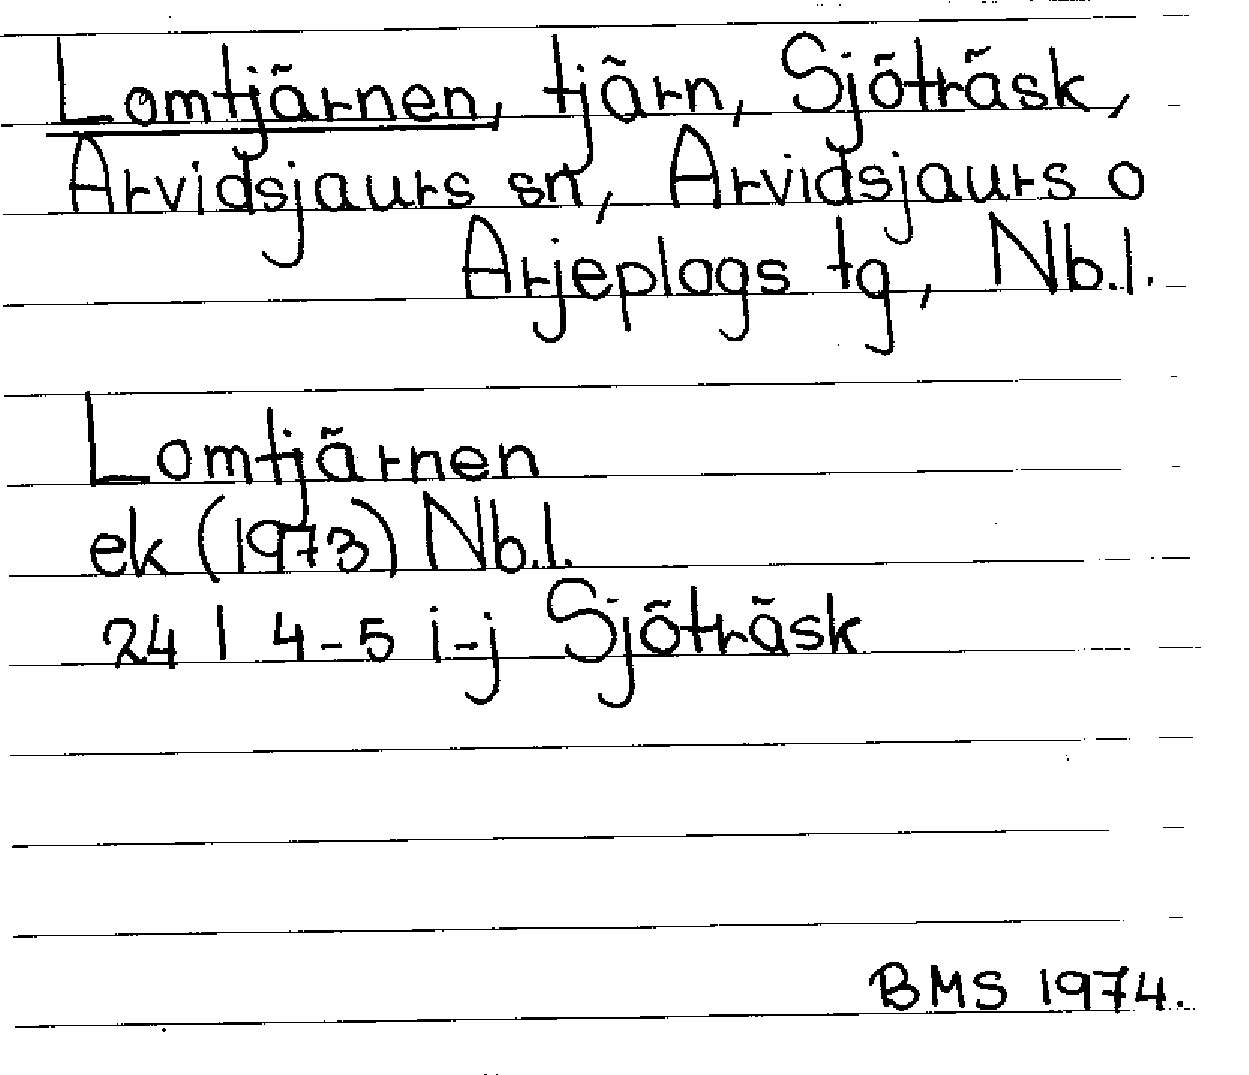 Lomtjärnen, tjärn, Sjöträsk,
Arvidsjaurs sn, Arvidsjaurs o
Arjeplogs tg, Nb.l.
Lomtjärnen
ek (1973) Nb.l.
24 I 4-5 i-j Sjöträsk
BMS 1974.